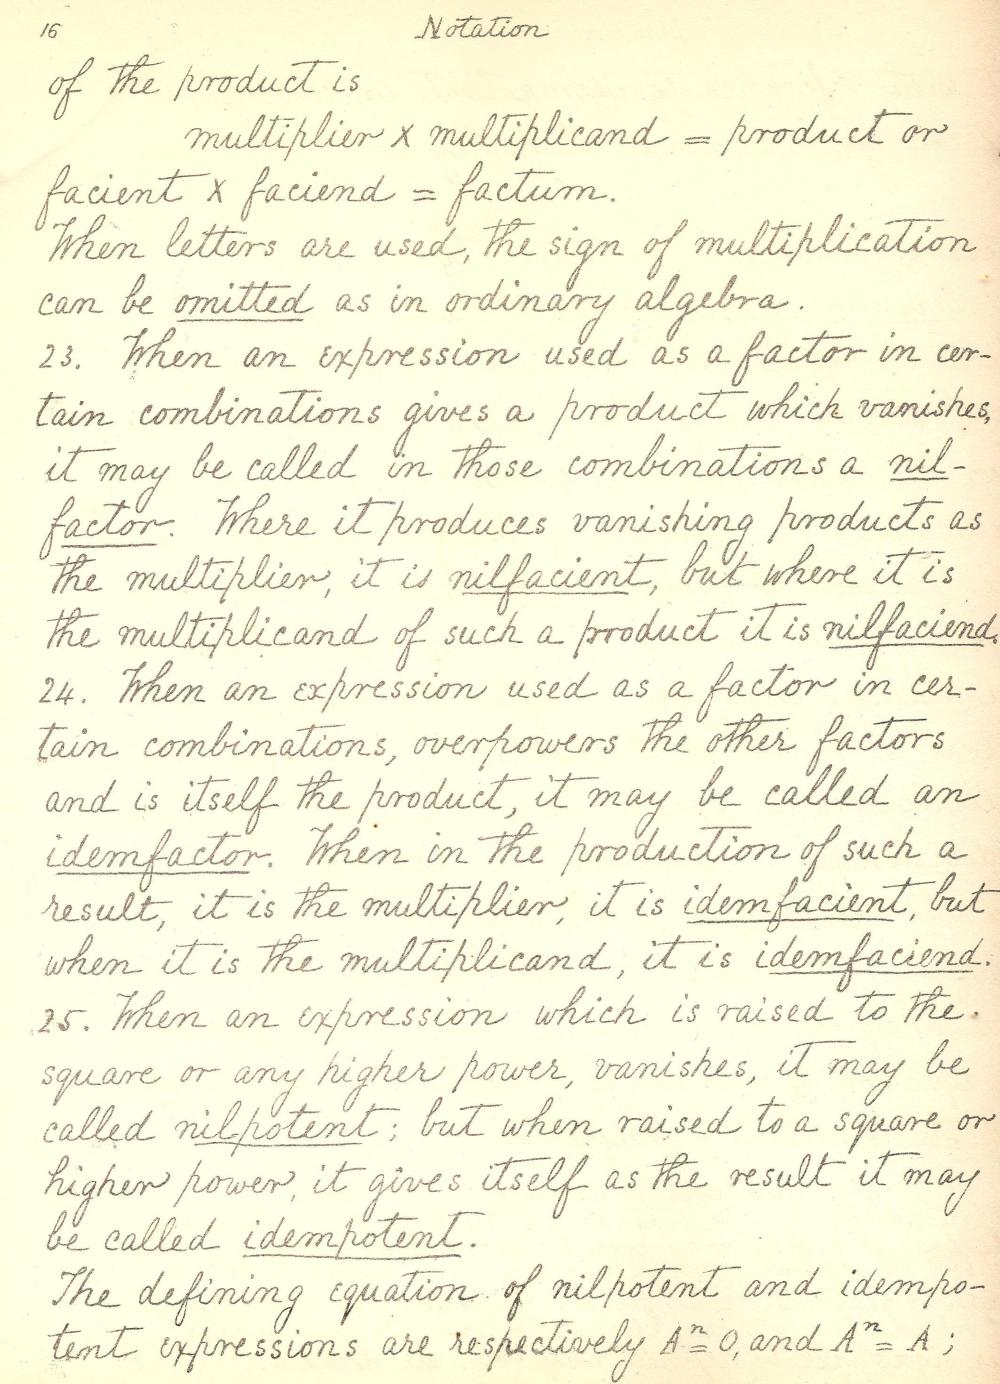 16 Notation
of the product is
multiplier × multiplicand = product or
facient × faciend = factum.
When letters are used, the sign of multiplication
can be omitted as in ordinary algebra.
23. When an expression used as a factor in cer-
tain combinations gives a product which vanishes,
it may be called in those combinations a nil-
factor. Where it produces vanishing products as
the multiplier, it is nilfacient, but where it is
the multiplicand of such a product it is nilfaciend.
24. When an expression used as a factor in cer-
tain combinations, overpowers the other factors
and is itself the product, it may be called an
idemfactor. When in the production of such a
result, it is the multiplier, it is idemfacient, but
when it is the multiplicand, it is idemfaciend.
25. When an expression which is raised to the
square or any higher power, vanishes, it may be
called nilpotent; but when raised to a square or
higher power, it gives itself as the result it may
be called idempotent.
The defining equation of nilpotent and idempo-
tent expressions are respectively Aⁿ = 0, and Aⁿ = A;